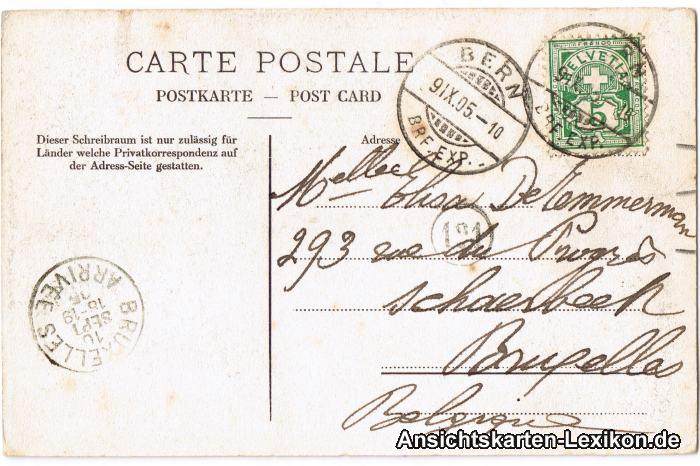 CARTE POSTALE
POSTKARTE — POST CARD
Dieser Schreibraum ist nur zulässig für
Länder welche Privatkorrespondenz auf
der Adress-Seite gestatten.
Adresse
BERN
9.IX.05.-10
BRF.EXP.
FRANCO
HELVETIA
5
BRF.EXP.
Melle Elisa De Temmerman
293 rue du Progrès
Schaerbeek
Bruxelles
Belgique
131
BRUXELLES
ARRIVÉE
10
SEPT
18-19
Ansichtskarten-Lexikon.de